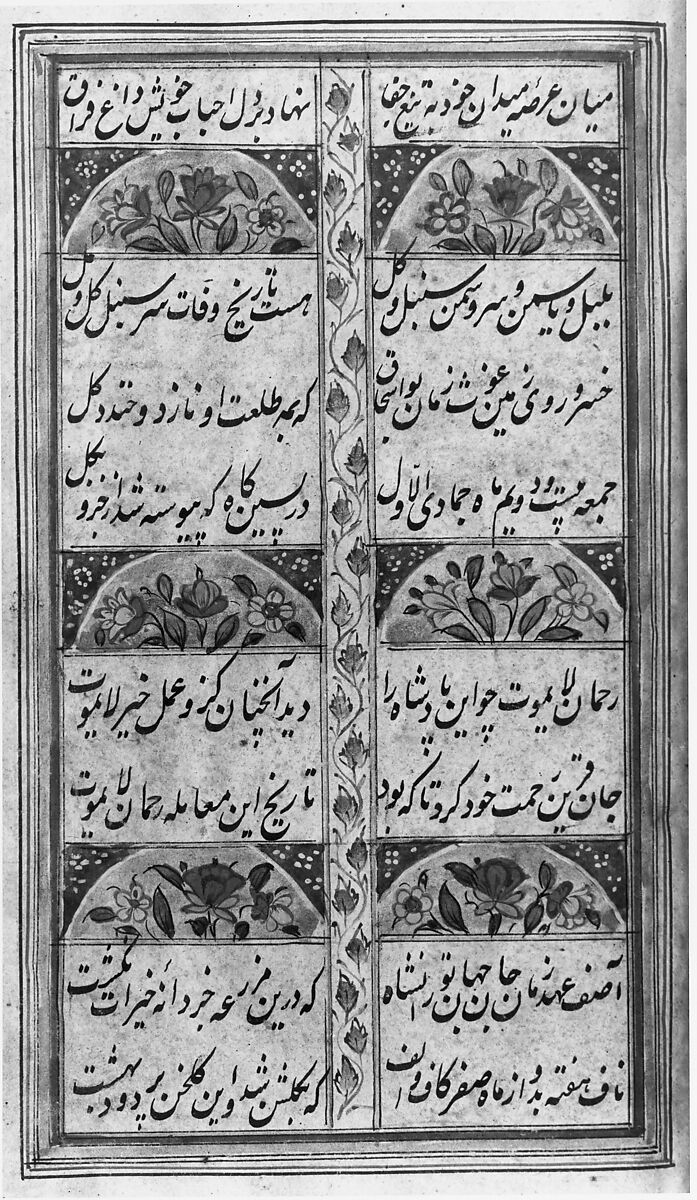 میان عرصهٔ میدان خود به تیغ جفا نهاد بر دل احباب خویش داغ فراق
بلبل و یاسمن و سرو سمن سنبل و گل هست تاریخ وفات سر سنبل گل و
خسرو روی زمین غوث زمان بواسحاق که بمه طلعت او نازد و خندد گل
جمعه بیست ودویم ماه جمادی الاول در پسین کاه که پیوسته شد از جزو بکل
رحمان لا یموت چو این پادشاه را دید آنچنان کزو عمل خیر لا یموت
جان قرین رحمت خود کرد تا که بود تاریخ این معامله رحمان لا یموت
آصف عهد زمان جان جهان تورانشاه که درین مزرعه جز دانهٔ خیرات نکشت
ناف هفته بد و از ماه صفر کاف والف که بکلشن شد و این کلخن پر دود بهشت